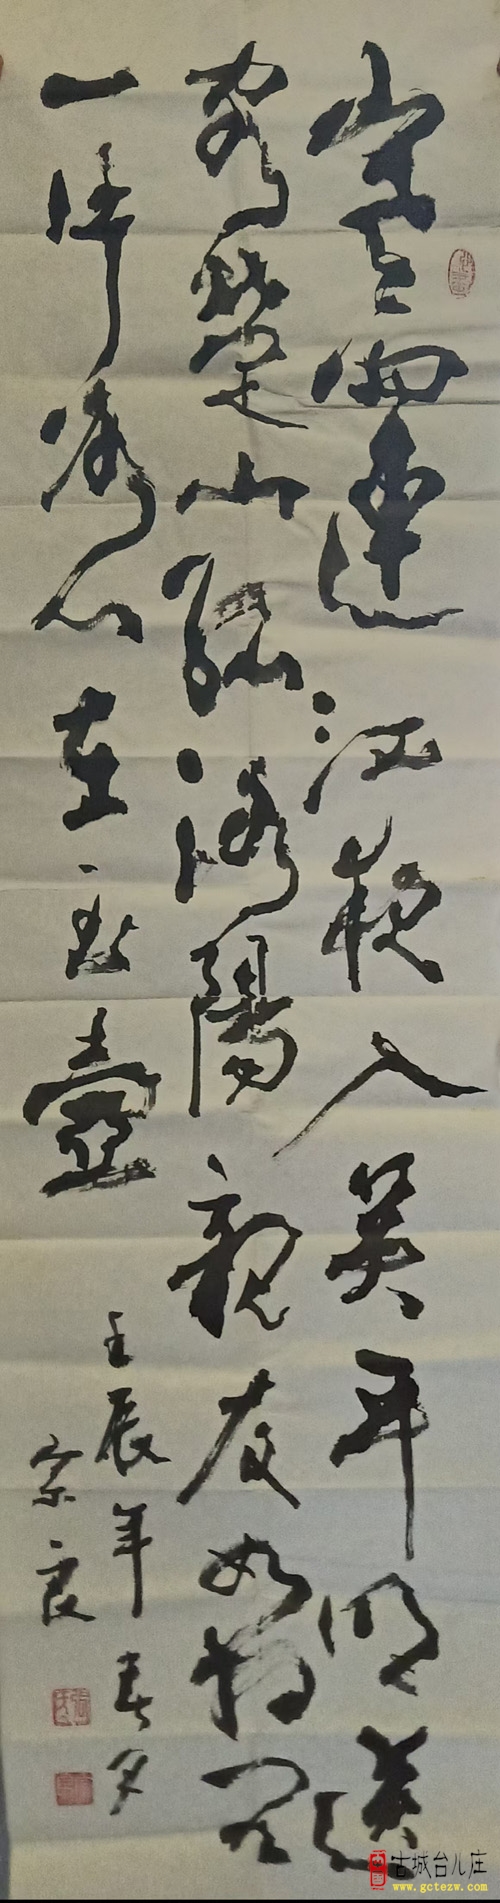 寒雨連江夜入吳平明送
客楚山孤洛陽親友如相問
一片冰心在玉壺
壬辰年春夕
宗良
古城台儿庄
www.gctezw.com